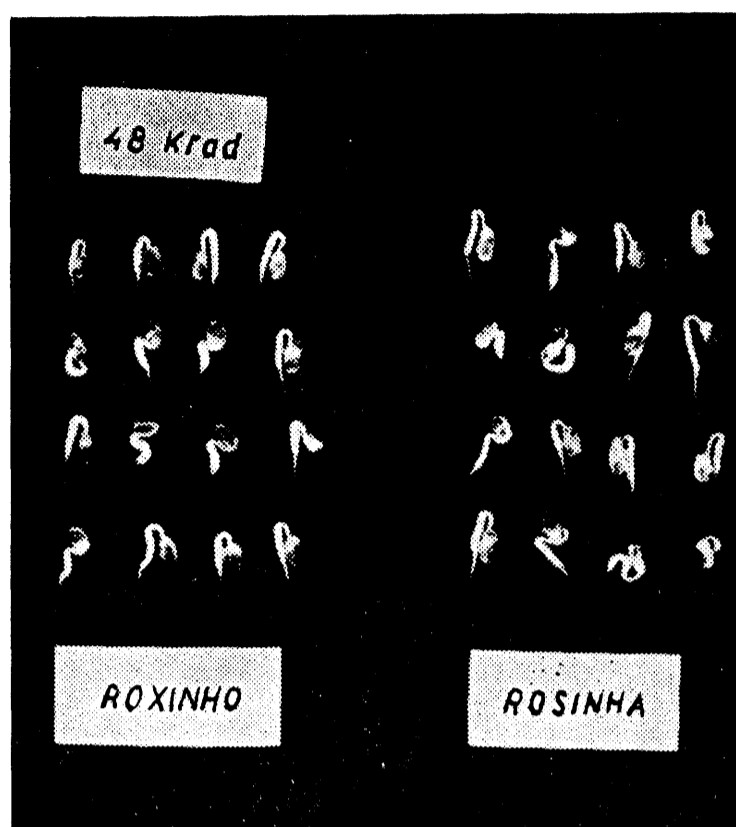 48 Krad
ROXINHO
ROSINHA